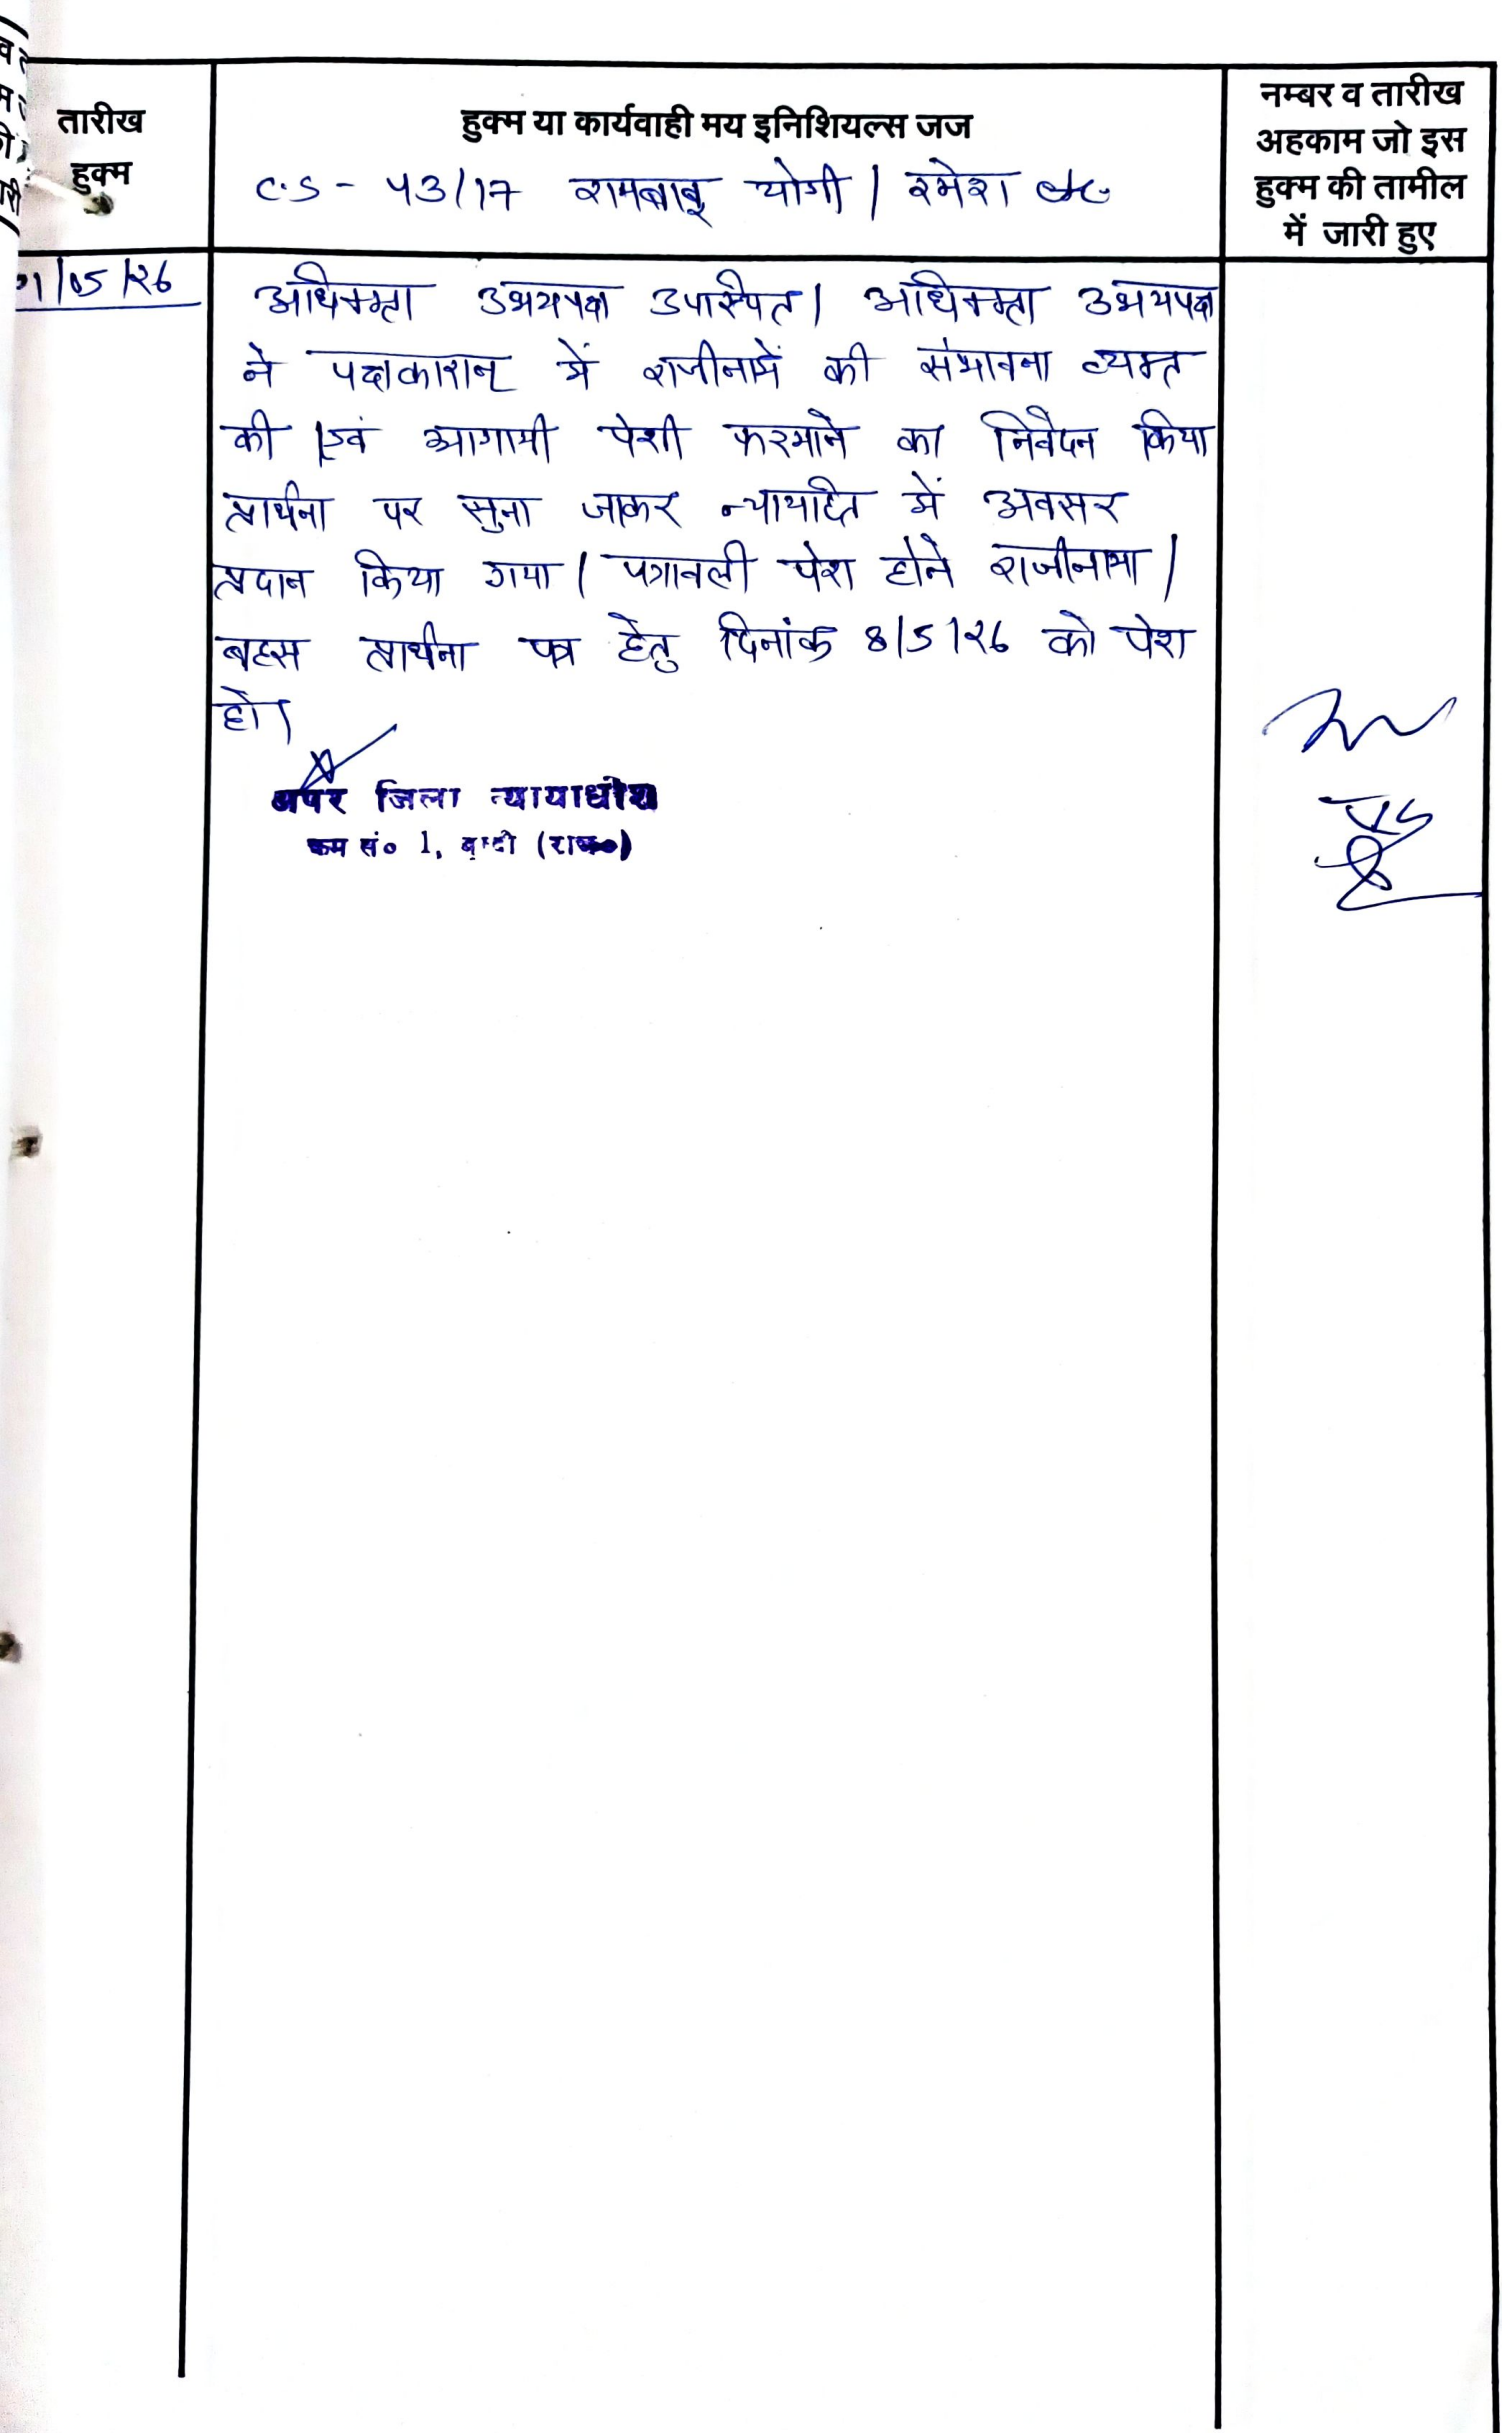 तारीख
हुक्म
हुक्म या कार्यवाही मय इनिशियल्स जज
C.S - 43/17 रामबाबू योगी / रमेश etc
नम्बर व तारीख
अहकाम जो इस
हुक्म की तामील
में जारी हुए
1/05/26
अधिवक्ता उभयपक्ष उपस्थित। अधिवक्ता उभयपक्ष
ने पक्षकारान् में राजीनामें की संभावना व्यक्त
की एवं आगामी पेशी फरमाने का निवेदन किया
प्रार्थना पर सुना जाकर न्यायहित में अवसर
प्रदान किया गया। पत्रावली पेश होने राजीनामा /
बहस प्रार्थना पत्र हेतु दिनांक 8/5/26 को पेश
हो।
अपर जिला न्यायाधीश
क्रम सं० 1, (राज०)